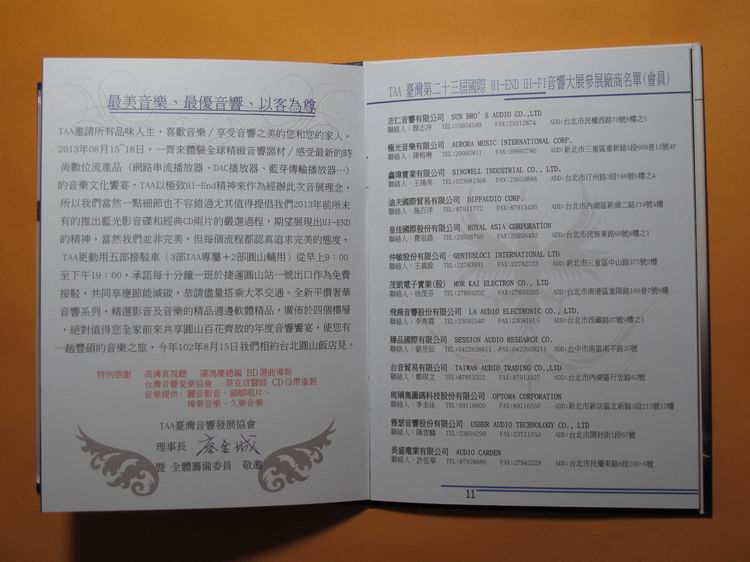 最美音樂、最優音響、以客為尊
TAA邀請所有品味人生，喜歡音樂/享受音響之美的您和您的家人。
2013年08月15~18日，一齊來體驗全球精緻音響器材/感受最新的時
尚數位流產品 (網路串流播放器、DAC播放器、藍芽傳輸播放器…)
的音樂文化饗宴，TAA以極致HI-End精神來作為經辦此次音展理念，
所以我們當然一點細節也不容錯過尤其值得提倡我們2013年前所未
有的推出藍光影音碟和經典CD兩片的嚴選過程，期望展現出HI-END
的精神，當然我們並非完美，但每個流程都認真追求完美的態度，
TAA更動用五部接駁車 (3部TAA專屬+2部圓山輔用) 從早上9：00
至下午19：00，承諾每十分鐘一班於捷運圓山站一號出口作為免費
接駁，共同享應節能減碳，恭請儘量搭乘大眾交通。全新平價奢華
音響系列，精選影音及音樂的精品週邊軟體精品，廣佈於四個樓層
，絕對值得您全家前來共享圓山百花齊放的年度音響饗宴，使您有
一趟豐碩的音樂之旅，今年102年8月15日我們相約台北圓山飯店見。
特別感謝 高傳真視聽 BD選曲導聆
台灣音響愛樂協會 蔡克信醫師 CD母帶重製
音樂提供：麗音影音、頭額唱片、
瑋秦音樂、久樂音樂
TAA臺灣音響發展協會
理事長
暨 全體籌備委員 敬邀
TAA 臺灣第二十三屆國際 HI-END HI-FI音響大展參展廠商名單(會員)
志仁音響有限公司 SUN BRO'S AUDIO CO.,LTD
聯絡人：顏志冲 TEL:25604599 FAX:25312874 ADD:台北市民權西路70號8樓之1
極光音樂有限公司 AURORA MUSIC INTERNATIONAL CORP.
聯絡人：陳榕琳 TEL:29992811 FAX:29992780 ADD:新北市三重區重新路5段609巷12號4F
鑫瑋實業有限公司 SINGWELL INDUSTRIAL CO., LTD.
聯絡人：王鴻美 TEL:023681368 FAX:23653888 ADD:台北市汀州路3段188號6樓之4
迪夫國際貿易有限公司 DIFFAUDIO CORP.
聯絡人：施百洋 TEL:87911772 FAX:87913430 ADD:台北市內湖區新湖二路219號4樓
皇佳國際股份有限公司 ROYAL ASIA CORPORATION
聯絡人：費祖蔭 TEL:25928760 FAX:25926492 ADD:台北市民族東路60號8樓之1
仲敏股份有限公司 GENIUSLOCI INTERNATIONAL LTD
聯絡人：王義銓 TEL:22783931 FAX:22782723 ADD:新北市三重區中山路375號2樓
茂凱電子實業(股) MOR KAI ELECTRON CO., LTD
聯絡人：徐茂芬 TEL:27893202 FAX:27893205 ADD:台北市南港區重陽路166巷7號6樓
飛揚音響股份有限公司 LA AUDIO ELECTRONIC CO., LTD.
聯絡人：李秀霞 TEL:23092540 FAX:23091615 ADD:台北市西藏路37號9樓之1
臻品國際有限公司 SESSION AUDIO RESEARCH CO.
聯絡人：劉昱辰 TEL:0422638811 FAX:0422608211 ADD:台中市南區南平路35號
台音貿易有限公司 TAIWAN AUDIO TRADING CO.,LTD
聯絡人：鄭琪文 TEL:87913322 FAX:87913327 ADD:台北市內湖區行忠路62號
琉璃奧圖碼科技股份有限公司 OPTOMA CORPORATION
聯絡人：李圭泳 TEL:89118600 FAX:89116550 ADD:新北市新店區北新路3段215號12樓
雅瑟音響股份有限公司 USHER AUDIO TECHNOLOGY CO., LTD
聯絡人：陳雲麟 TEL:23816299 FAX:23711053 ADD:台北市開封街1段67號
長盛電業有限公司 AUDIO CARDEN
聯絡人：許恆華 TEL:87928880 FAX:27942228 ADD:台北市民權東路6段230-5號
11